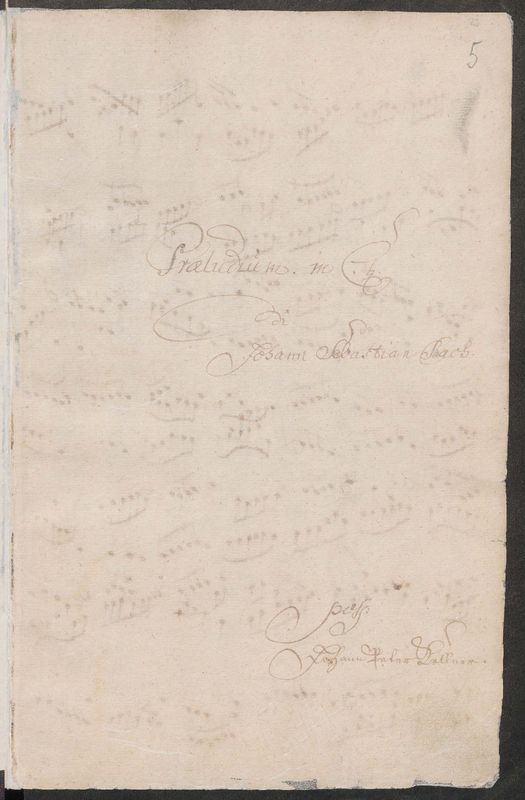 5
Præludium. in C.♮.
di
Johann Sebastian Bach.
poss.
Johann Peter Kellner.